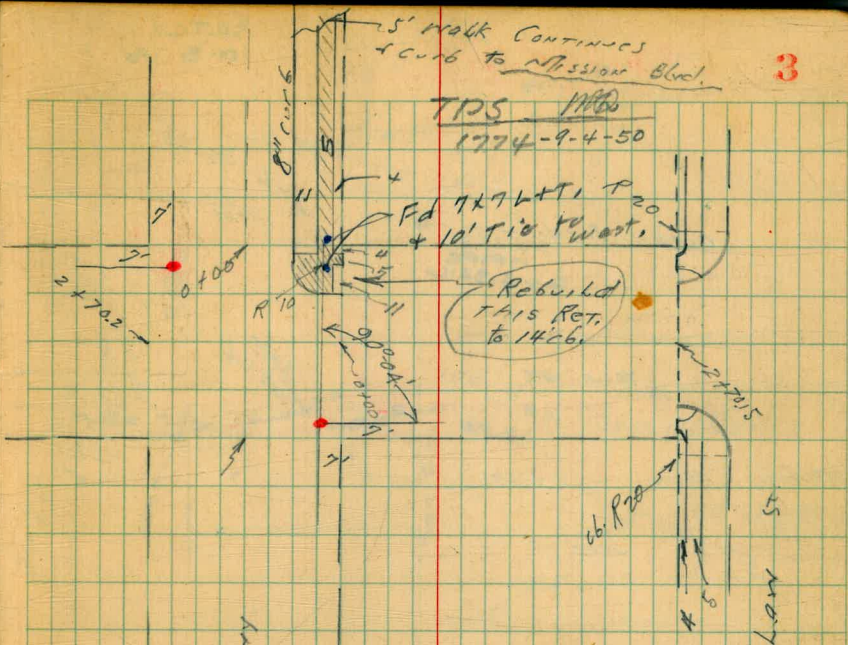 5' walk Continues
+ curb to Mission Blvd.
3
TPS
1774-9-4-50
8" curb
5
11
4
Fd 7x7 L+T,
+ 10' Tie to West.
R 20
7'
7'
0+00
2+70.2
R 10
4
5
11
Rebuild
This Ret.
to 14'cb.
90°-04'
0+00
7'
7'
2+70.15
cb. R20
5
4
St
Law